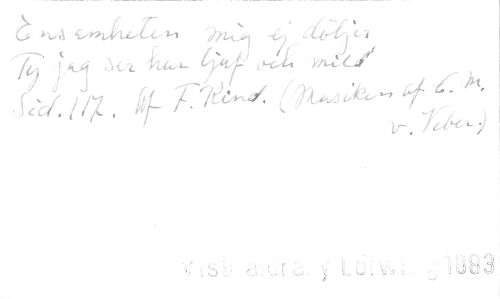 Ensamheten mig ej döljer
Ty jag ser hur ljuf och mild
Sid. 117. Af F. Kind. (Musiken af C. M.
v. Veber.)
1883